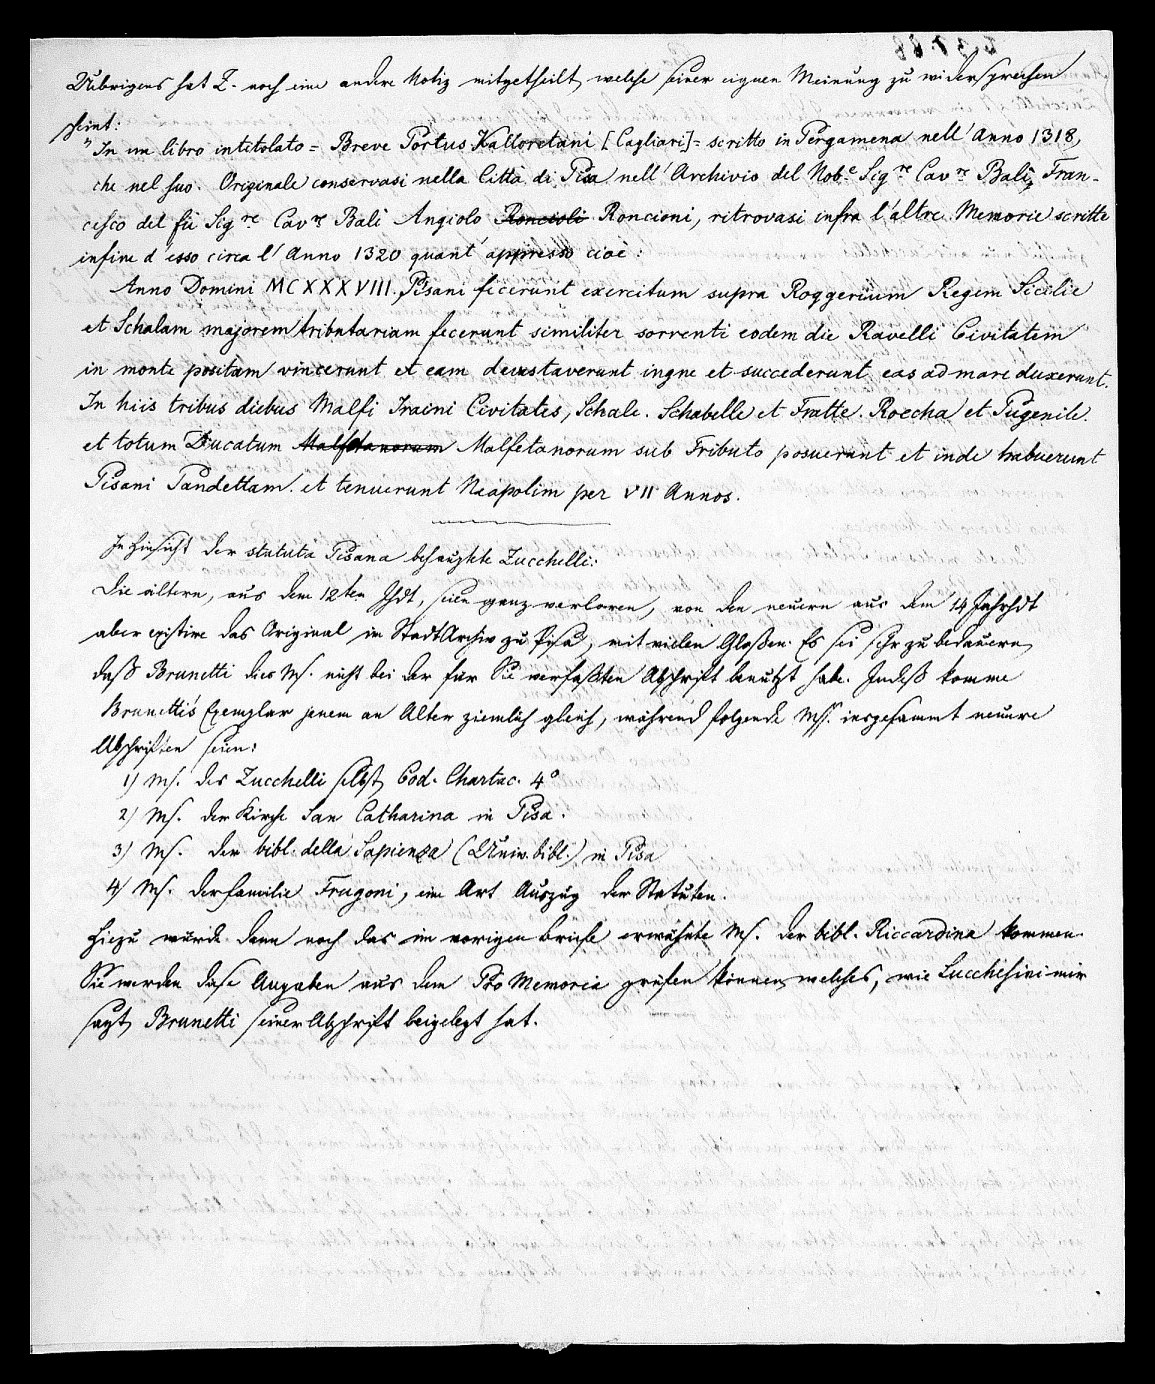 Uebrigens hat Z. noch eine andere Notiz mitgetheilt, welche seiner eignen Meinung zu widersprechen
scheint:
"In un libro intitolato = Breve Portus Kalloretani [Cagliari] = scritto in Pergamena nell' Anno 1318,
che nel suo Originale conservasi nella Citta di Pisa nell' Archivio del Nob.e Sig.re Cav.re Bali, Fran-
cesco del fù Sig.re Cav.re Bali Angiolo Roncioli Roncioni, ritrovasi infra l'altre Memorie scritte
infine d'esso circa l' Anno 1320 quant' appresso cioè:
Anno Domini MCXXXVIII. Pisani fecerunt exercitum supra Roggerium Regem Sicilie
et Schalam majorem tributariam fecerunt similiter sorrenti eodem die Ravelli Civitatem
in monte positam vincerunt et eam devastaverunt ingne et succederunt eas ad mare duxerunt.
In hiis tribus diebus Malfi Traini Civitates, Schale. Schabelle et Fratte. Roccha et Pugenile.
et totum Ducatum Malfetanorum Malfetanorum sub Tributo posuerunt et inde habuerunt
Pisani Pandettam. et tenuerunt Neapolim per VII Annos.
In Hinsicht der statuta Pisana behauptete Zucchelli:
Die ältern, aus dem 12ten Jhdt, seien ganz verloren, von den neuern aus dem 14 Jahrhdt
aber existire das Original im StadtArchiv zu Pisa, mit vielen Gloßen. Es sei sehr zu bedauern
daß Brunetti dies Ms. nicht bei der für Sie verfaßten Abschrift benutzt habe. Indeß komme
Brunetti's Exemplar jenem an Alter ziemlich gleich, während folgende Mss. insgesammt neuere
Abschriften seien:
1) Ms. des Zucchelli selbst, Cod. Chartac. 4°
2) Ms. der Kirche San Catharina in Pisa.
3) Ms. der bibl. della Sapienza (Univ. bibl.) in Pisa
4) Ms. der familie Frugoni, eine Art Auszug der Statuten.
Hiezu würde denn noch das im vorigen Briefe erwähnte Ms. der bibl. Riccardina kommen.
Sie werden diese Angaben aus dem Pro Memoria prüfen können, welches, wie Lucchesini mir
sagt, Brunetti seiner Abschrift beigelegt hat.